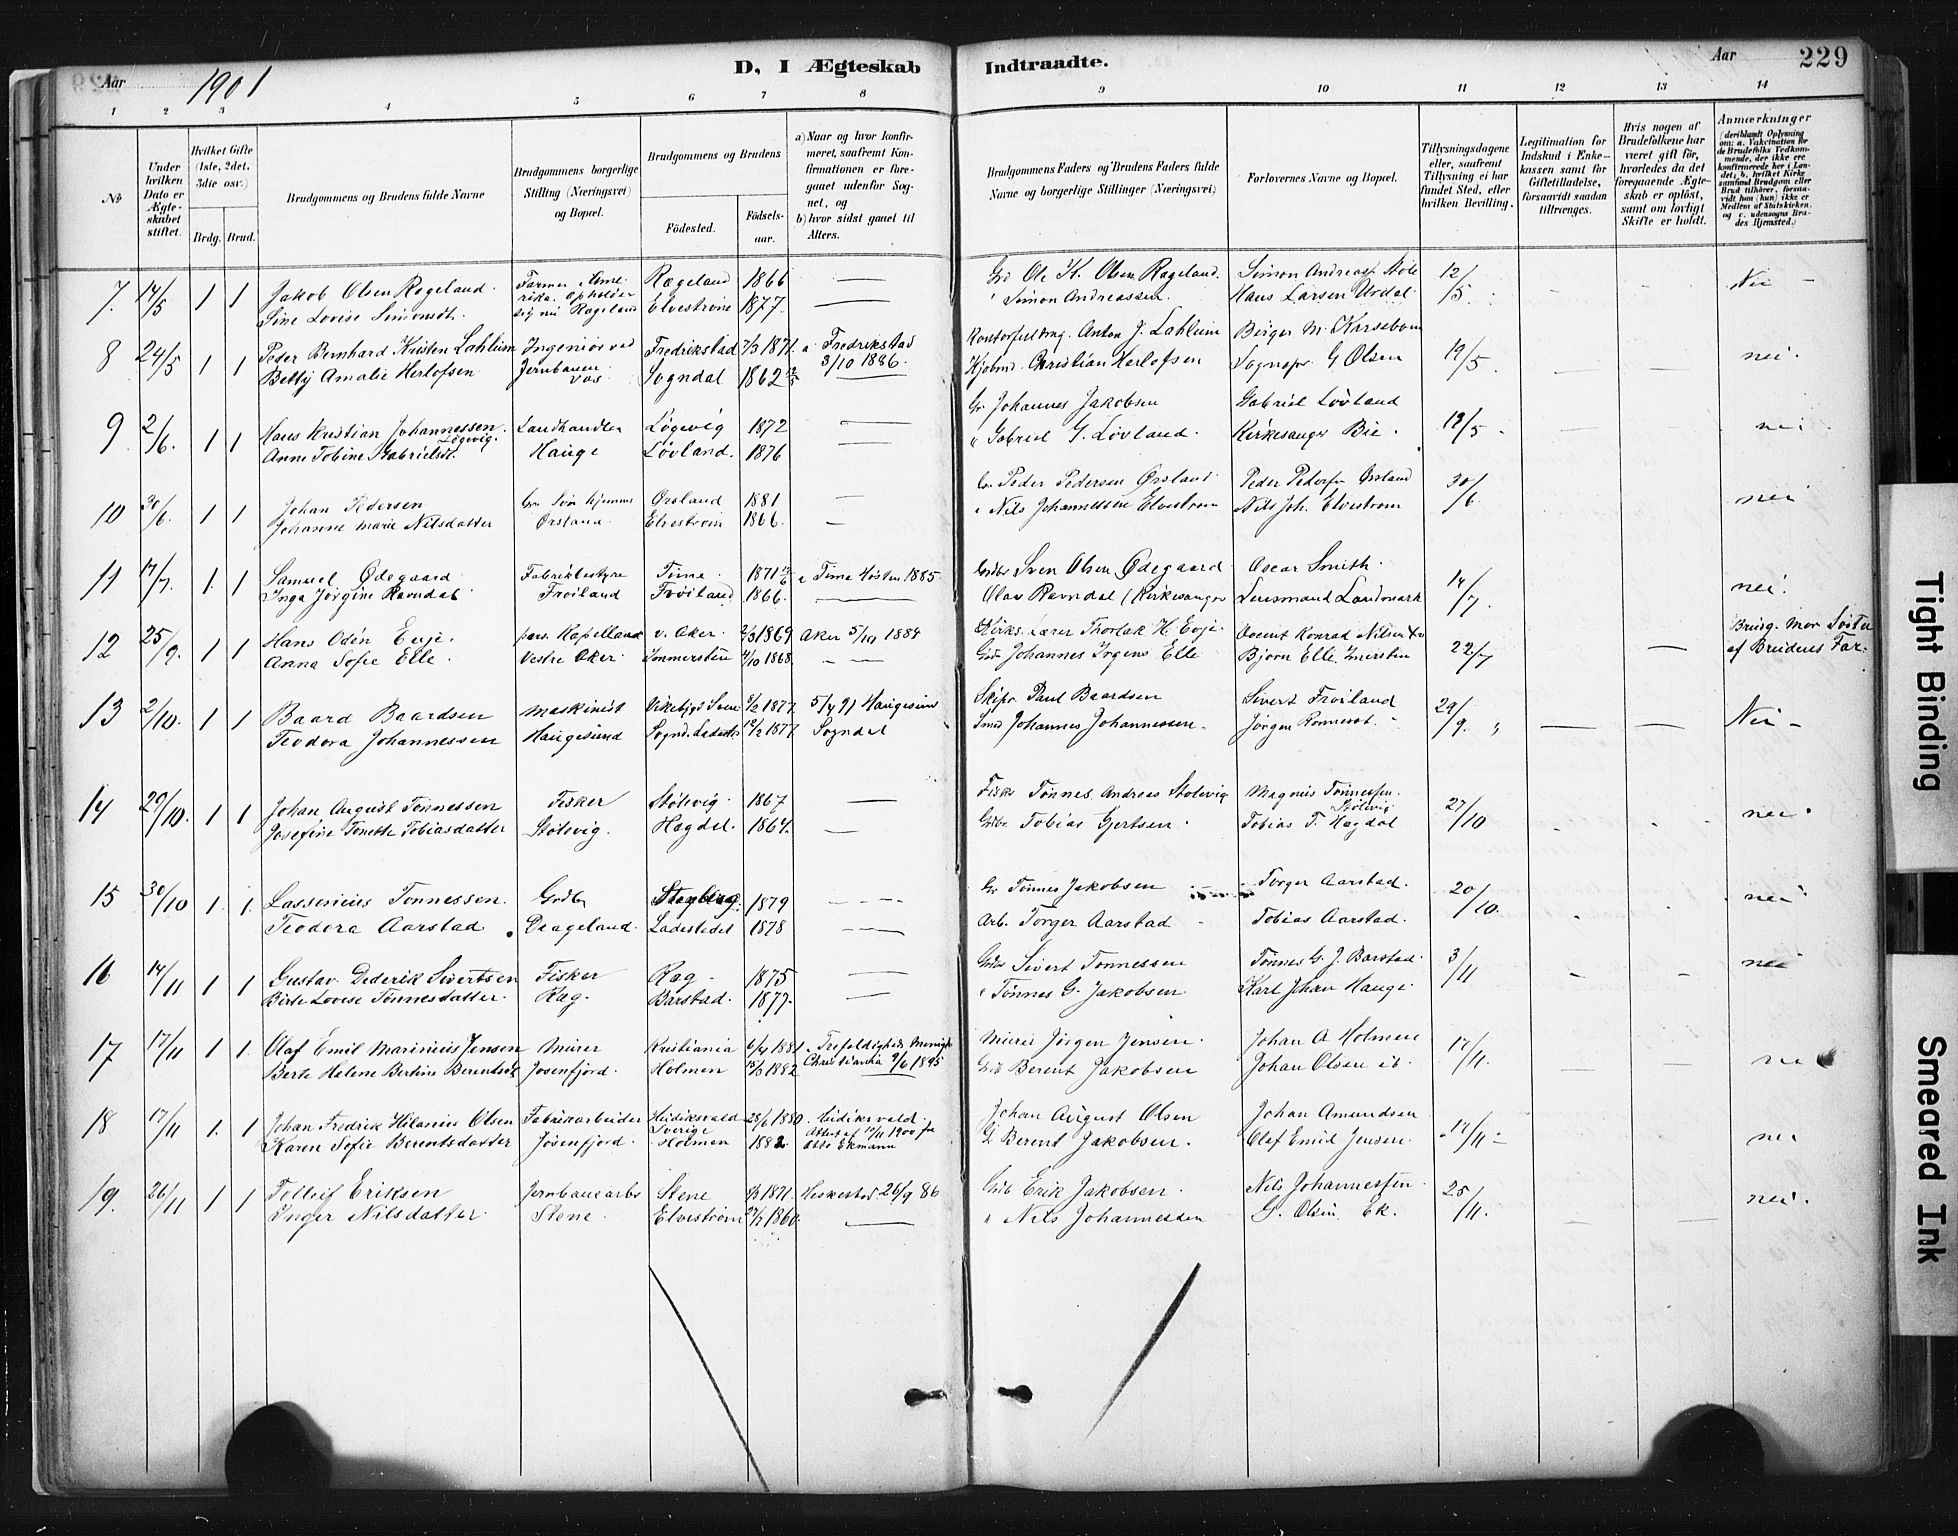 Aar 1901 D, I Ægteskab Indtraadte. Aar 229
1 2 3 4 5 6 7 8 9 10 11 12 13 14
No
Under hvilken Dato er Ægteskabet stiftet.
Hvilket Gifte (1ste, 2det, 3die osv.)
Brdg. Brud.
Brudgommens og Brudens fulde Navne
Brudgommens borgerlige Stilling (Næringsvei) og Bopæl.
Brudgommens og Brudens
Födested. Födselsaar.
a) Naar og hvor konfirmeret, saafremt Konfirmationen er foregaaet udenfor Sognet, og
b) hvor sidst gaaet til Alters.
Brudgommens Faders og Brudens Faders fulde Navne og borgerlige Stillinger (Næringsvei)
Forlovernes Navne og Bopæl.
Tillysningsdagene eller, saafremt Tillysning ei har fundet Sted, efter hvilken Bevilling.
Legitimation for Indskud i Enkekassen samt for Giftetilladelse, forsaavidt saadan tiltrænges.
Hvis nogen af Brudefolkene har været gift för, hvorledes da det foregaaende Ægteskab er oplöst, samt om lovligt Skifte er holdt.
Anmærkninger
7. 14/5 1 1 Jakob Olsen Rageland. Farmer Amerika. opholder sig nu Rageland Rægeland 1866 — Ole K. Olsen Rageland. Simon Andreas. 12/5 Nei
Sine Lovise Simonsdt. Elvestrøm 1877. — " Simon Andreassen. Hans Larsen Urdal.
8 24/5 1 1 Peder Bernhard Kristen Lahlum Ingeniør ved Jernbanen Fredrikstad 7/3 1871. a Fredrikstad 3/10 1886. Anton J. Lahlum Birger M. 19/5 nei.
Betty Amalie Herlofsen Sogndal 1862 — Kjøbmd. Christian Herlofsen Sognepr G Olsen
9 2/6. 1 1 Hans Kristian Johannessen. Løgevig. Landhandler Løgevig 1872 — Gr Johannes Jakobsen Gabriel Lövland 12/5 nei
Anne Tobine Gabrielsdt. Hauge Lövland. 1876 — " Gabriel G. Lövland. Kirkesanger Bie.
10 30/6. 1 1 Johan Pedersen Ørsland 1881 — Peder Pedersen Ørsland Peder Pedersen Ørsland 30/6 nei
Johanne Marie Nilsdatter Ørsland. Elvestrøm 1866. — " Nils Johannessen Elvestrom Nils Joh. Elvestrom
11 17/7. 1. 1 Samuel Ødegaard Fabrikbestyrer Time 1871 a Time Høsten 1885. Sven Olsen Ødegaard Oscar Smith. 14/7. nei.
Inga Jørgine Ravndal Froiland Froiland 1866. — Olav Ravndal (Kirkesanger Lensmand
12 25/9. 1 1 Hans Odin Evje. pers. Kapellan v. Aker. 1869 Aker 5/10 1884 Kirks. Lærer Thorlak H. Evje. Konrad Nilsen 22/7 — Brudg. Mor Søster
Anna Sofie Elle. Vestre Aker. 4/10 1868. — Johannes Irgens Elle Bjorn Elle. af Brudens Far.
13 2/10. 1 1 Baard Baardsen Maskinist 1877 5/4 91 Haugesund Skipr. Paul Baardsen Sivert Froiland 29/9. — — Nei
Teodora Johannessen Haugesund 1877 Sogndal Smed Johannes Johannessen. Jörgen
14 29/10. 1 1 Johan August Tönnessen Fisker Stölevig. 1867 — Fisker Tönnes Andreas Stölevig Magnus Tönnessen. Stölevig 27/10 nei.
Josefine Tonette Tobiasdatter Stölevig. Hægdal. 1864. — Tobias Gjertsen. Tobias T. Hægdal
15 30/10 1. 1. Lassenius Tonnessen. Grdbr 1879 — Gr Tönnes Jakobsen Torger Aarstad. 20/10. nei
Teodora Aarstad Drageland. Ladestedet 1878 — Arb. Torger Aarstad Tobias Aarstad.
16 14/11 1 1 Gustav Diderik Sivertsen Fisker Rag 1875 — Sivert Tonnessen Tönnes G. J. Barstad. 3/11 nei
Birte Lovise Tönnesdatter. Rag. Barstad. 1877. — " Tönnes G. Jakobsen Karl Johan Hauge.
17 17/11 1 1 Olaf Emil Marinius Jensen Murer Kristiania 6/4 1881 Trefoldigheds Menigh Christiania 9/6 1895 Murer Jörgen Jensen. Johan A Holmen 17/11. nei
Berte Helene Bertine Berentsdt. Jøsenfjord. Holmen 1882 — Berent Jakobsen Johan Olsen ib.
18 17/11 1. 1 Johan Fredrik Hilanius Olsen Fabrikarbeider Hudiksvald Sverige 28/6 1880 Hudiksvald. Attest af 12/11 1900 fra Otto Ekmann Johan August Olsen Johan Amundsen 17/11 nei
Karen Sofie Berentsdatter Jösenfjord. Holmen 1882. G Berent Jakobsen. Olaf Emil Jensen.
19. 26/11 1 1 Tolleif Eriksen Jernbanearbr Stene 1871. Heskestad 26/9 86 Erik Jakobsen. Nils Johannessen. 25/11. nei.
Inger Nilsdatter. Stene. Elvestrøm 1860. — " Nils Johannessen G. Olsen Ek.
Tight Binding
Smeared Ink